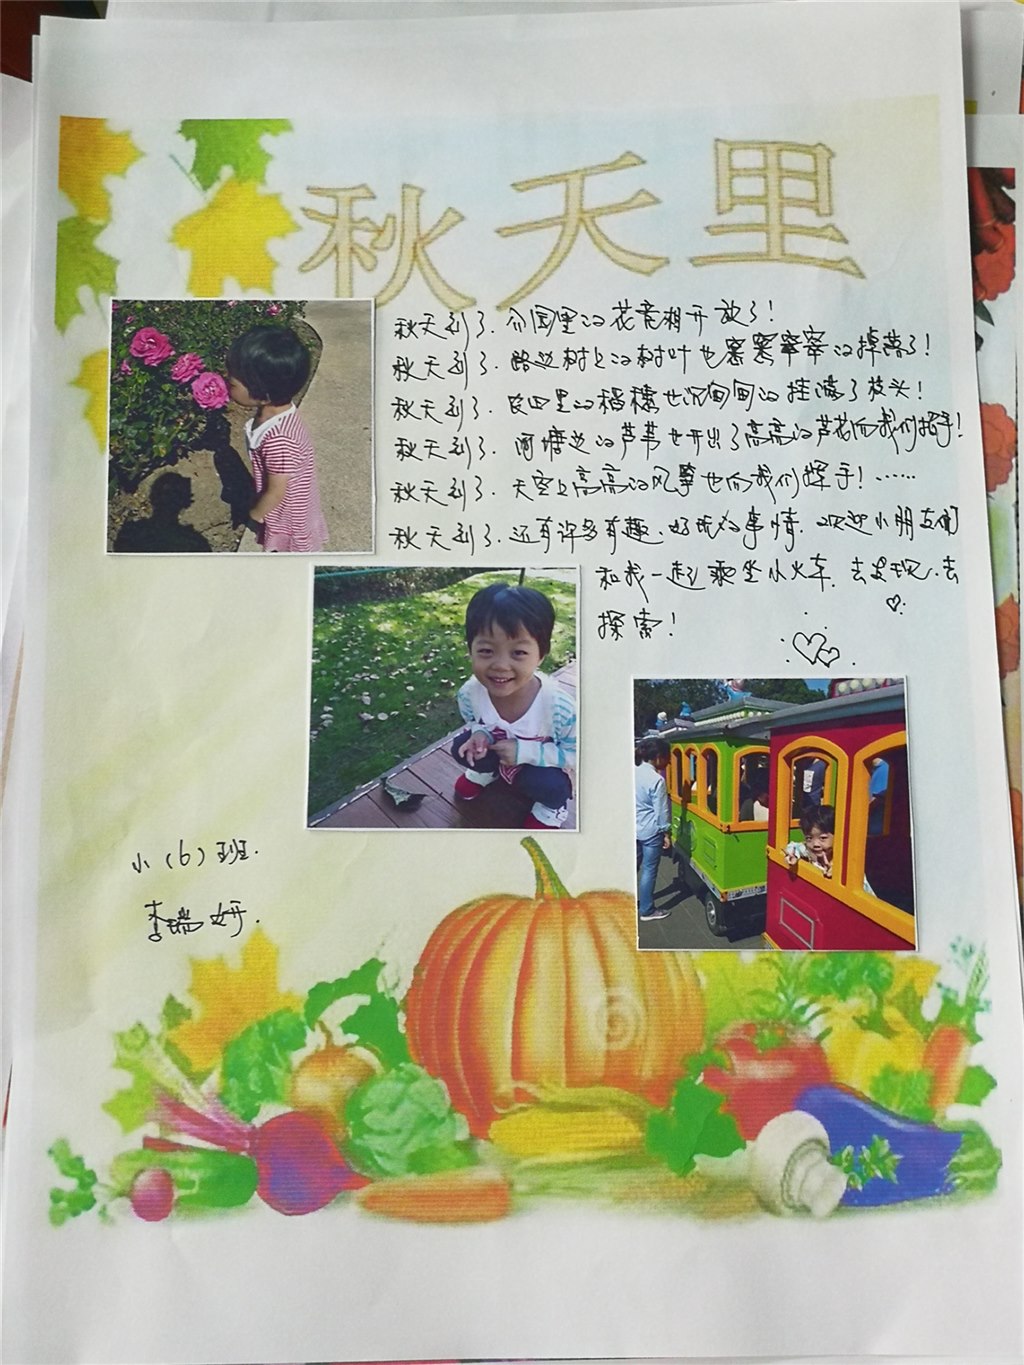 秋天里
秋天到了. 公园里的花竞相开放了!
秋天到了. 路边树上的树叶也窸窸窣窣的掉落了!
秋天到了. 农田里的稻穗也沉甸甸的挂满了枝头!
秋天到了. 河塘边的芦苇也开出了高高的芦花向我们招手!
秋天到了. 天空上高高的风筝也向我们挥手! ……
秋天到了. 还有许多有趣、好玩的事情. 欢迎小朋友们
和我一起乘坐小火车. 去发现. 去
探索!
小(6)班.
李瑞妍.